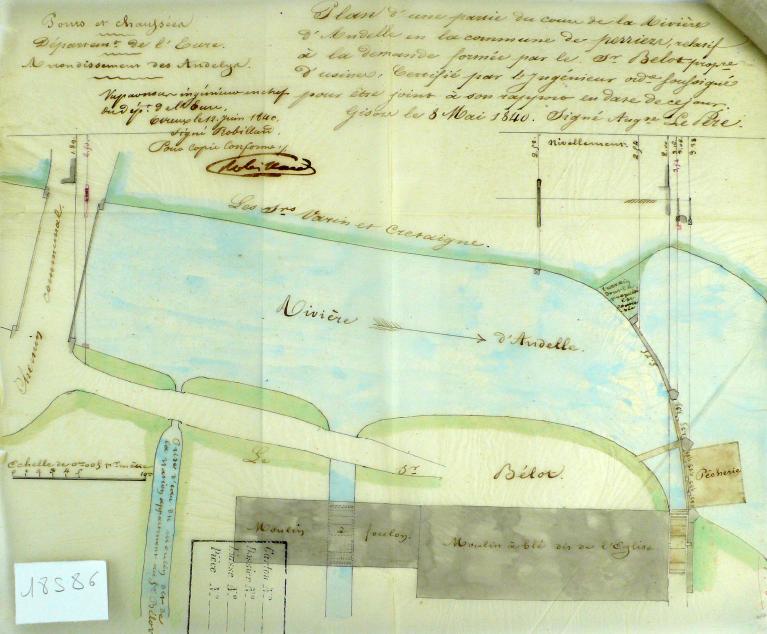 Ponts et chaussées
Départemt. de l'Eure.
Arrondissement des Andelys.
Plan d'une partie du cours de la Rivière
d'Andelle en la commune de perriers, relatif
à la demande formée par le Sr. Belot propre
d'usine, Certifié par l'Ingénieur orde soussigné
pour être joint à son rapport en date de ce jour.
Gisors le 8 Mai 1840. Signé Augte Le Père.
Vu par nous ingénieur en chef
du dépt. de l'Eure,
Evreux le 11 juin 1840.
Signé Robillard.
Pour copie conforme
Robillard
Nivellement
Les Srs Varin et Cretaigne.
Chemin communal.
Rivière d'Andelle.
Le Sr. Bélot.
Echelle de 0m005 pr. mètre
Pêcherie
Moulin à foulon.
Moulin à blé dit de l'Eglise
Carton No
Dossier No
Liasse No
Pièce No
18S86